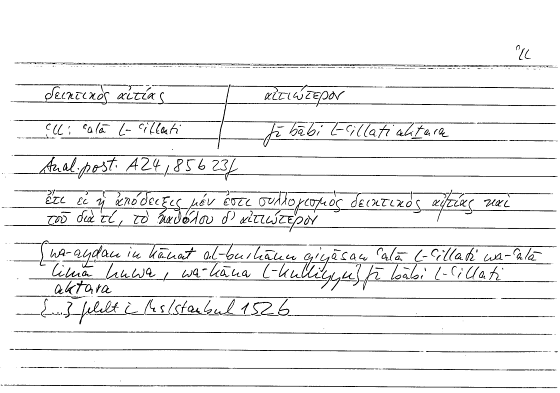 ʿll
δεικτικὸς αἰτίας / αἰτιώτερον
ʿll: ʿalā l-ʿillati fī bābi l-ʿillati akṯara
Anal. post. A24, 85b23f
ἔτι εἰ ἡ ἀπόδειξις μέν ἐστι συλλογισμὸς δεικτικὸς αἰτίας καὶ
τοῦ διὰ τί, τὸ καθόλου δ' αἰτιώτερον
{wa-ayḍan in kānat al-burhānu qiyāsan ʿalā l-ʿillati wa-ʿalā
limā huwa, wa-kāna l-kullīyu} fī bābi l-ʿillati
akṯara
{...} fehlt in Hs Istanbul 1526